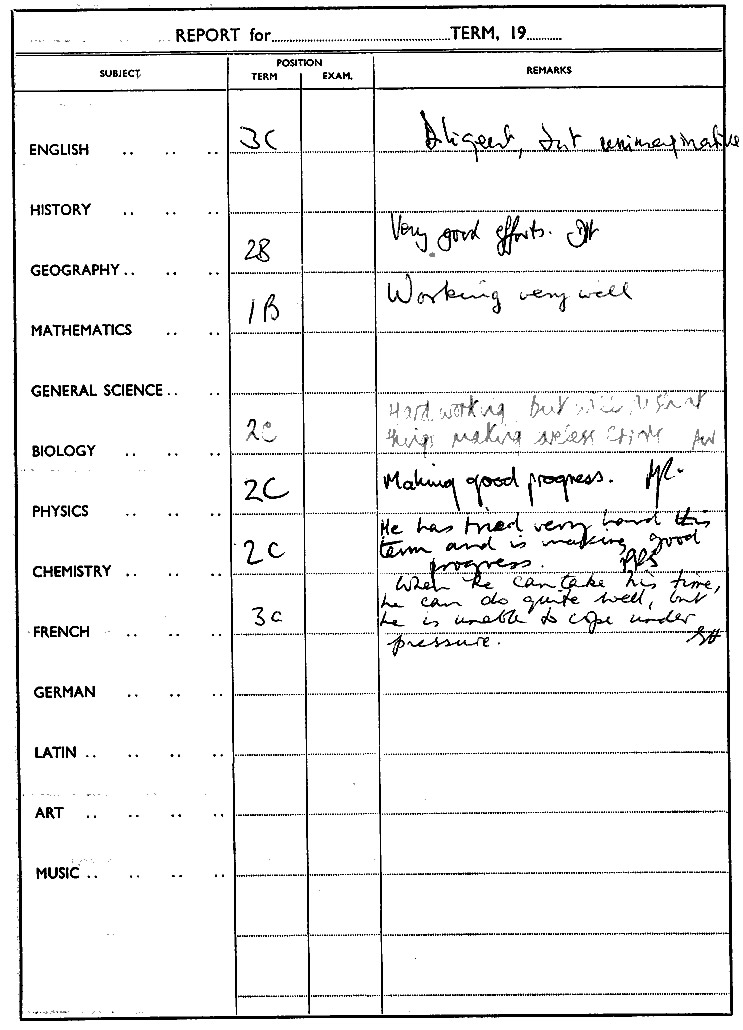 REPORT for.......... TERM, 19..........
SUBJECT. POSITION REMARKS
TERM EXAM.
ENGLISH .. .. .. 3C Diligent, but unimaginative
HISTORY .. .. ..
GEOGRAPHY .. .. .. 2B Very good efforts.
MATHEMATICS .. .. 1B Working very well
GENERAL SCIENCE .. ..
Hard working but will
BIOLOGY .. .. .. 2C things making careless
PHYSICS .. .. .. 2C Making good progress.
He has tried very hard this
CHEMISTRY .. .. .. 2C term and is making good
progress.
When he can take his time,
he can do quite well, but
FRENCH .. .. .. 3C he is unable to cope under
pressure.
GERMAN .. .. ..
LATIN .. .. .. ..
ART .. .. .. ..
MUSIC .. .. .. ..